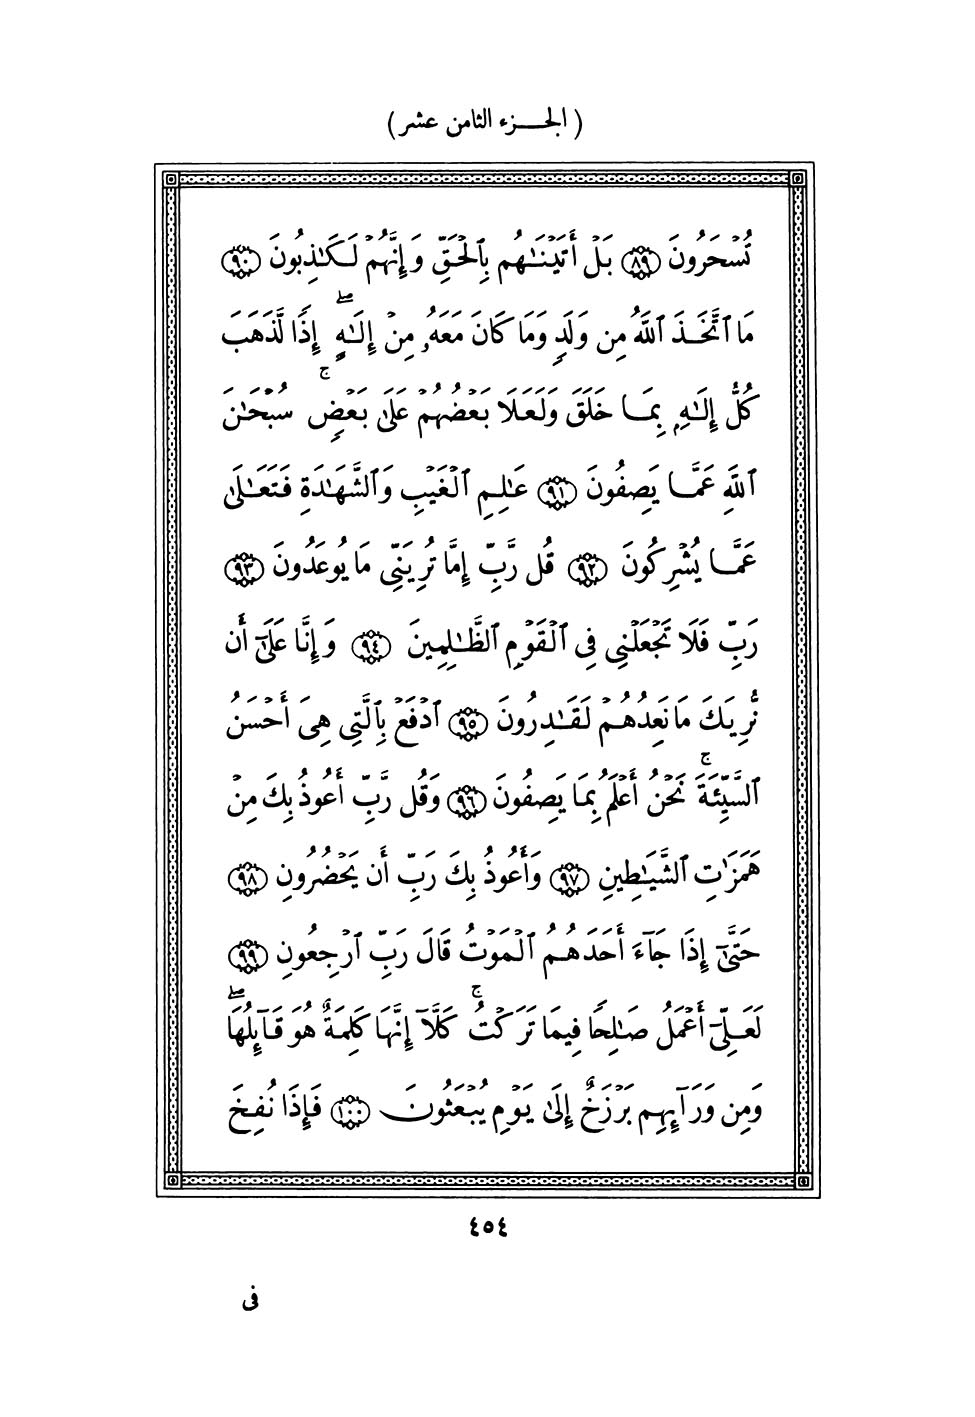 ( الجزء الثامن عشر )
تُسْحَرُونَ ﴿٨٩﴾ بَلْ أَتَيْنَٰهُم بِٱلْحَقِّ وَإِنَّهُمْ لَكَٰذِبُونَ ﴿٩٠﴾
مَا ٱتَّخَذَ ٱللَّهُ مِن وَلَدٍ وَمَا كَانَ مَعَهُۥ مِنْ إِلَٰهٍ ۖ إِذًا لَّذَهَبَ
كُلُّ إِلَٰهٍۭ بِمَا خَلَقَ وَلَعَلَا بَعْضُهُمْ عَلَىٰ بَعْضٍ ۚ سُبْحَٰنَ
ٱللَّهِ عَمَّا يَصِفُونَ ﴿٩١﴾ عَٰلِمِ ٱلْغَيْبِ وَٱلشَّهَٰدَةِ فَتَعَٰلَىٰ
عَمَّا يُشْرِكُونَ ﴿٩٢﴾ قُل رَّبِّ إِمَّا تُرِيَنِّي مَا يُوعَدُونَ ﴿٩٣﴾
رَبِّ فَلَا تَجْعَلْنِي فِي ٱلْقَوْمِ ٱلظَّٰلِمِينَ ﴿٩٤﴾ وَإِنَّا عَلَىٰٓ أَن
نُّرِيَكَ مَا نَعِدُهُمْ لَقَٰدِرُونَ ﴿٩٥﴾ ٱدْفَعْ بِٱلَّتِي هِيَ أَحْسَنُ
ٱلسَّيِّئَةَ ۚ نَحْنُ أَعْلَمُ بِمَا يَصِفُونَ ﴿٩٦﴾ وَقُل رَّبِّ أَعُوذُ بِكَ مِنْ
هَمَزَٰتِ ٱلشَّيَٰطِينِ ﴿٩٧﴾ وَأَعُوذُ بِكَ رَبِّ أَن يَحْضُرُونِ ﴿٩٨﴾
حَتَّىٰٓ إِذَا جَآءَ أَحَدَهُمُ ٱلْمَوْتُ قَالَ رَبِّ ٱرْجِعُونِ ﴿٩٩﴾
لَعَلِّيٓ أَعْمَلُ صَٰلِحًا فِيمَا تَرَكْتُ ۚ كَلَّآ إِنَّهَا كَلِمَةٌ هُوَ قَآئِلُهَا ۖ
وَمِن وَرَآئِهِم بَرْزَخٌ إِلَىٰ يَوْمِ يُبْعَثُونَ ﴿١٠٠﴾ فَإِذَا نُفِخَ
٤٥٤
فى